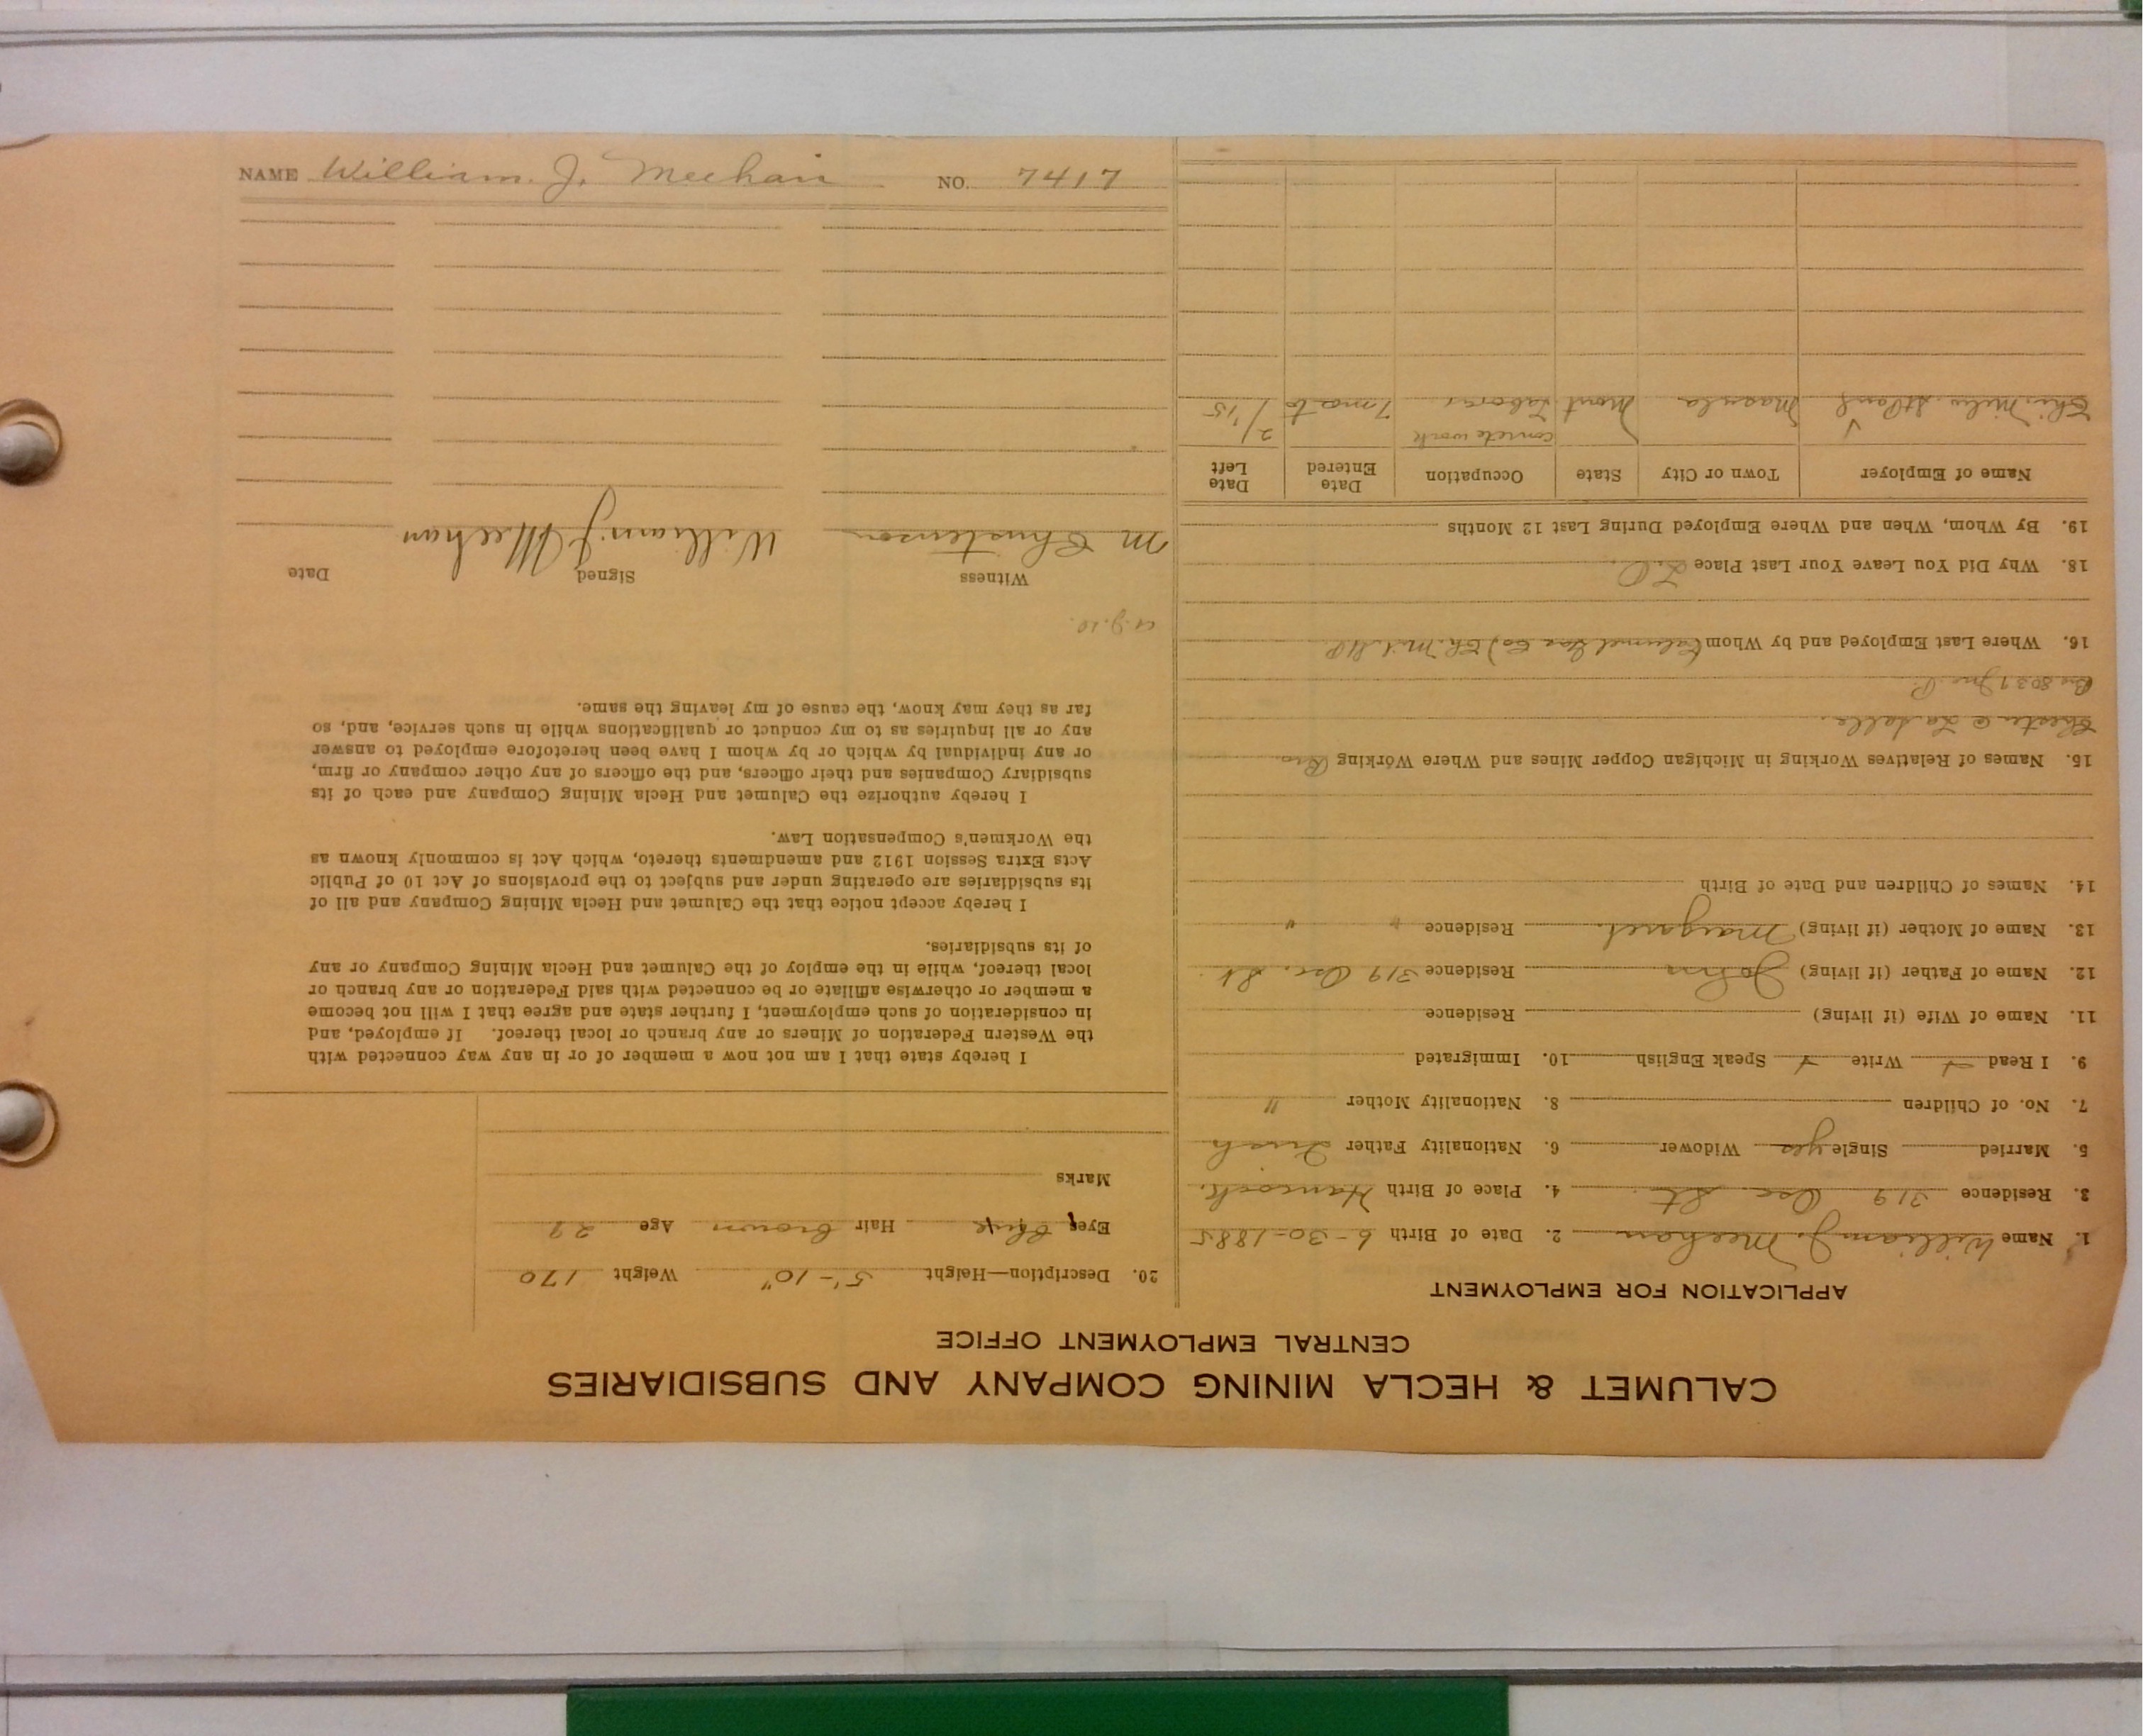 CALUMET & HECLA MINING COMPANY AND SUBSIDIARIES
CENTRAL EMPLOYMENT OFFICE
APPLICATION FOR EMPLOYMENT
1. Name William J. Meehan 2. Date of Birth 6-30-1885
3. Residence 319 Osc. St. 4. Place of Birth Hancock.
5. Married Single yes Widower 6. Nationality Father Irish
7. No. of Children 8. Nationality Mother "
9. I Read Write Speak English 10. Immigrated
11. Name of Wife (if living) Residence
12. Name of Father (if living) John Residence 319 Osc. St.
13. Name of Mother (if living) Margaret. Residence " "
14. Names of Children and Date of Birth
15. Names of Relatives Working in Michigan Copper Mines and Where Working Bro
Chester @ La Salle.
Bro 8039
16. Where Last Employed and by Whom (Calumet Gas Co)
18. Why Did You Leave Your Last Place L.O.
19. By Whom, When and Where Employed During Last 12 Months
Name of Employer Town or City State Occupation Date Entered Date Left
concrete work 2/
Chi. Milw. St Paul Mont Laborer 7 mo to 1/15
20. Description—Height 5'-10" Weight 170
Eyes Blue Hair Brown Age 29
Marks
I hereby state that I am not now a member of or in any way connected with
the Western Federation of Miners or any branch or local thereof. If employed, and
in consideration of such employment, I further state and agree that I will not become
a member or otherwise affiliate or be connected with said Federation or any branch or
local thereof, while in the employ of the Calumet and Hecla Mining Company or any
of its subsidiaries.
I hereby accept notice that the Calumet and Hecla Mining Company and all of
its subsidiaries are operating under and subject to the provisions of Act 10 of Public
Acts Extra Session 1912 and amendments thereto, which Act is commonly known as
the Workmen's Compensation Law.
I hereby authorize the Calumet and Hecla Mining Company and each of its
subsidiary Companies and their officers, and the officers of any other company or firm,
or any individual by which or by whom I have been heretofore employed to answer
any or all inquiries as to my conduct or qualifications while in such service, and, so
far as they may know, the cause of my leaving the same.
Witness Signed Date
M Christenson William J Meehan
NAME William. J. Meehan NO. 7417